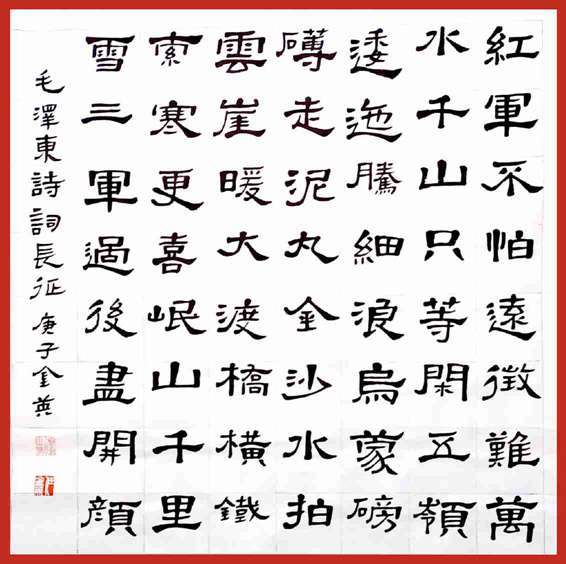 紅軍不怕遠徵難萬
水千山只等閑五嶺
逶迤騰細浪烏蒙磅
礴走泥丸金沙水拍
雲崖暖大渡橋橫鐵
索寒更喜岷山千里
雪三軍過後盡開顏
毛澤東詩詞長征 庚子金英